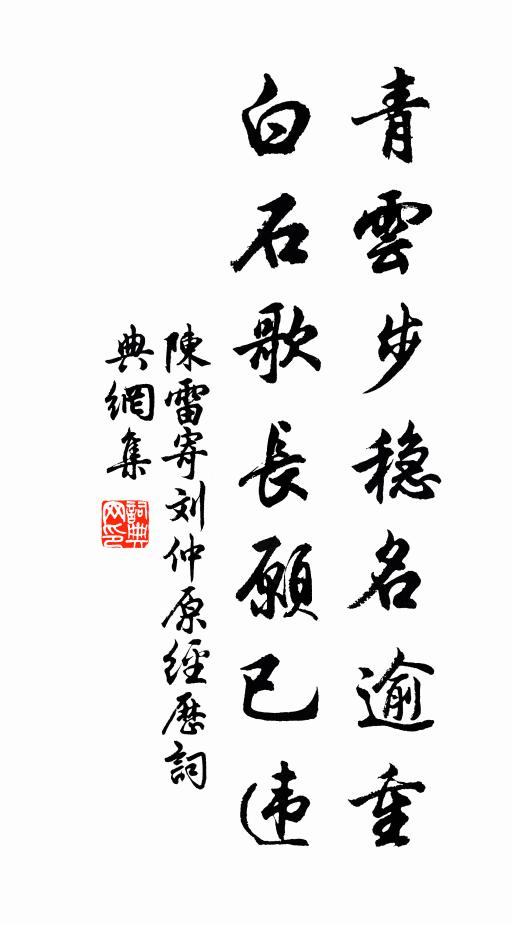 青雲步穩名逾重
白石歌長願已违
陳雷寄刘仲原經歷詞
典網集
詞典网印